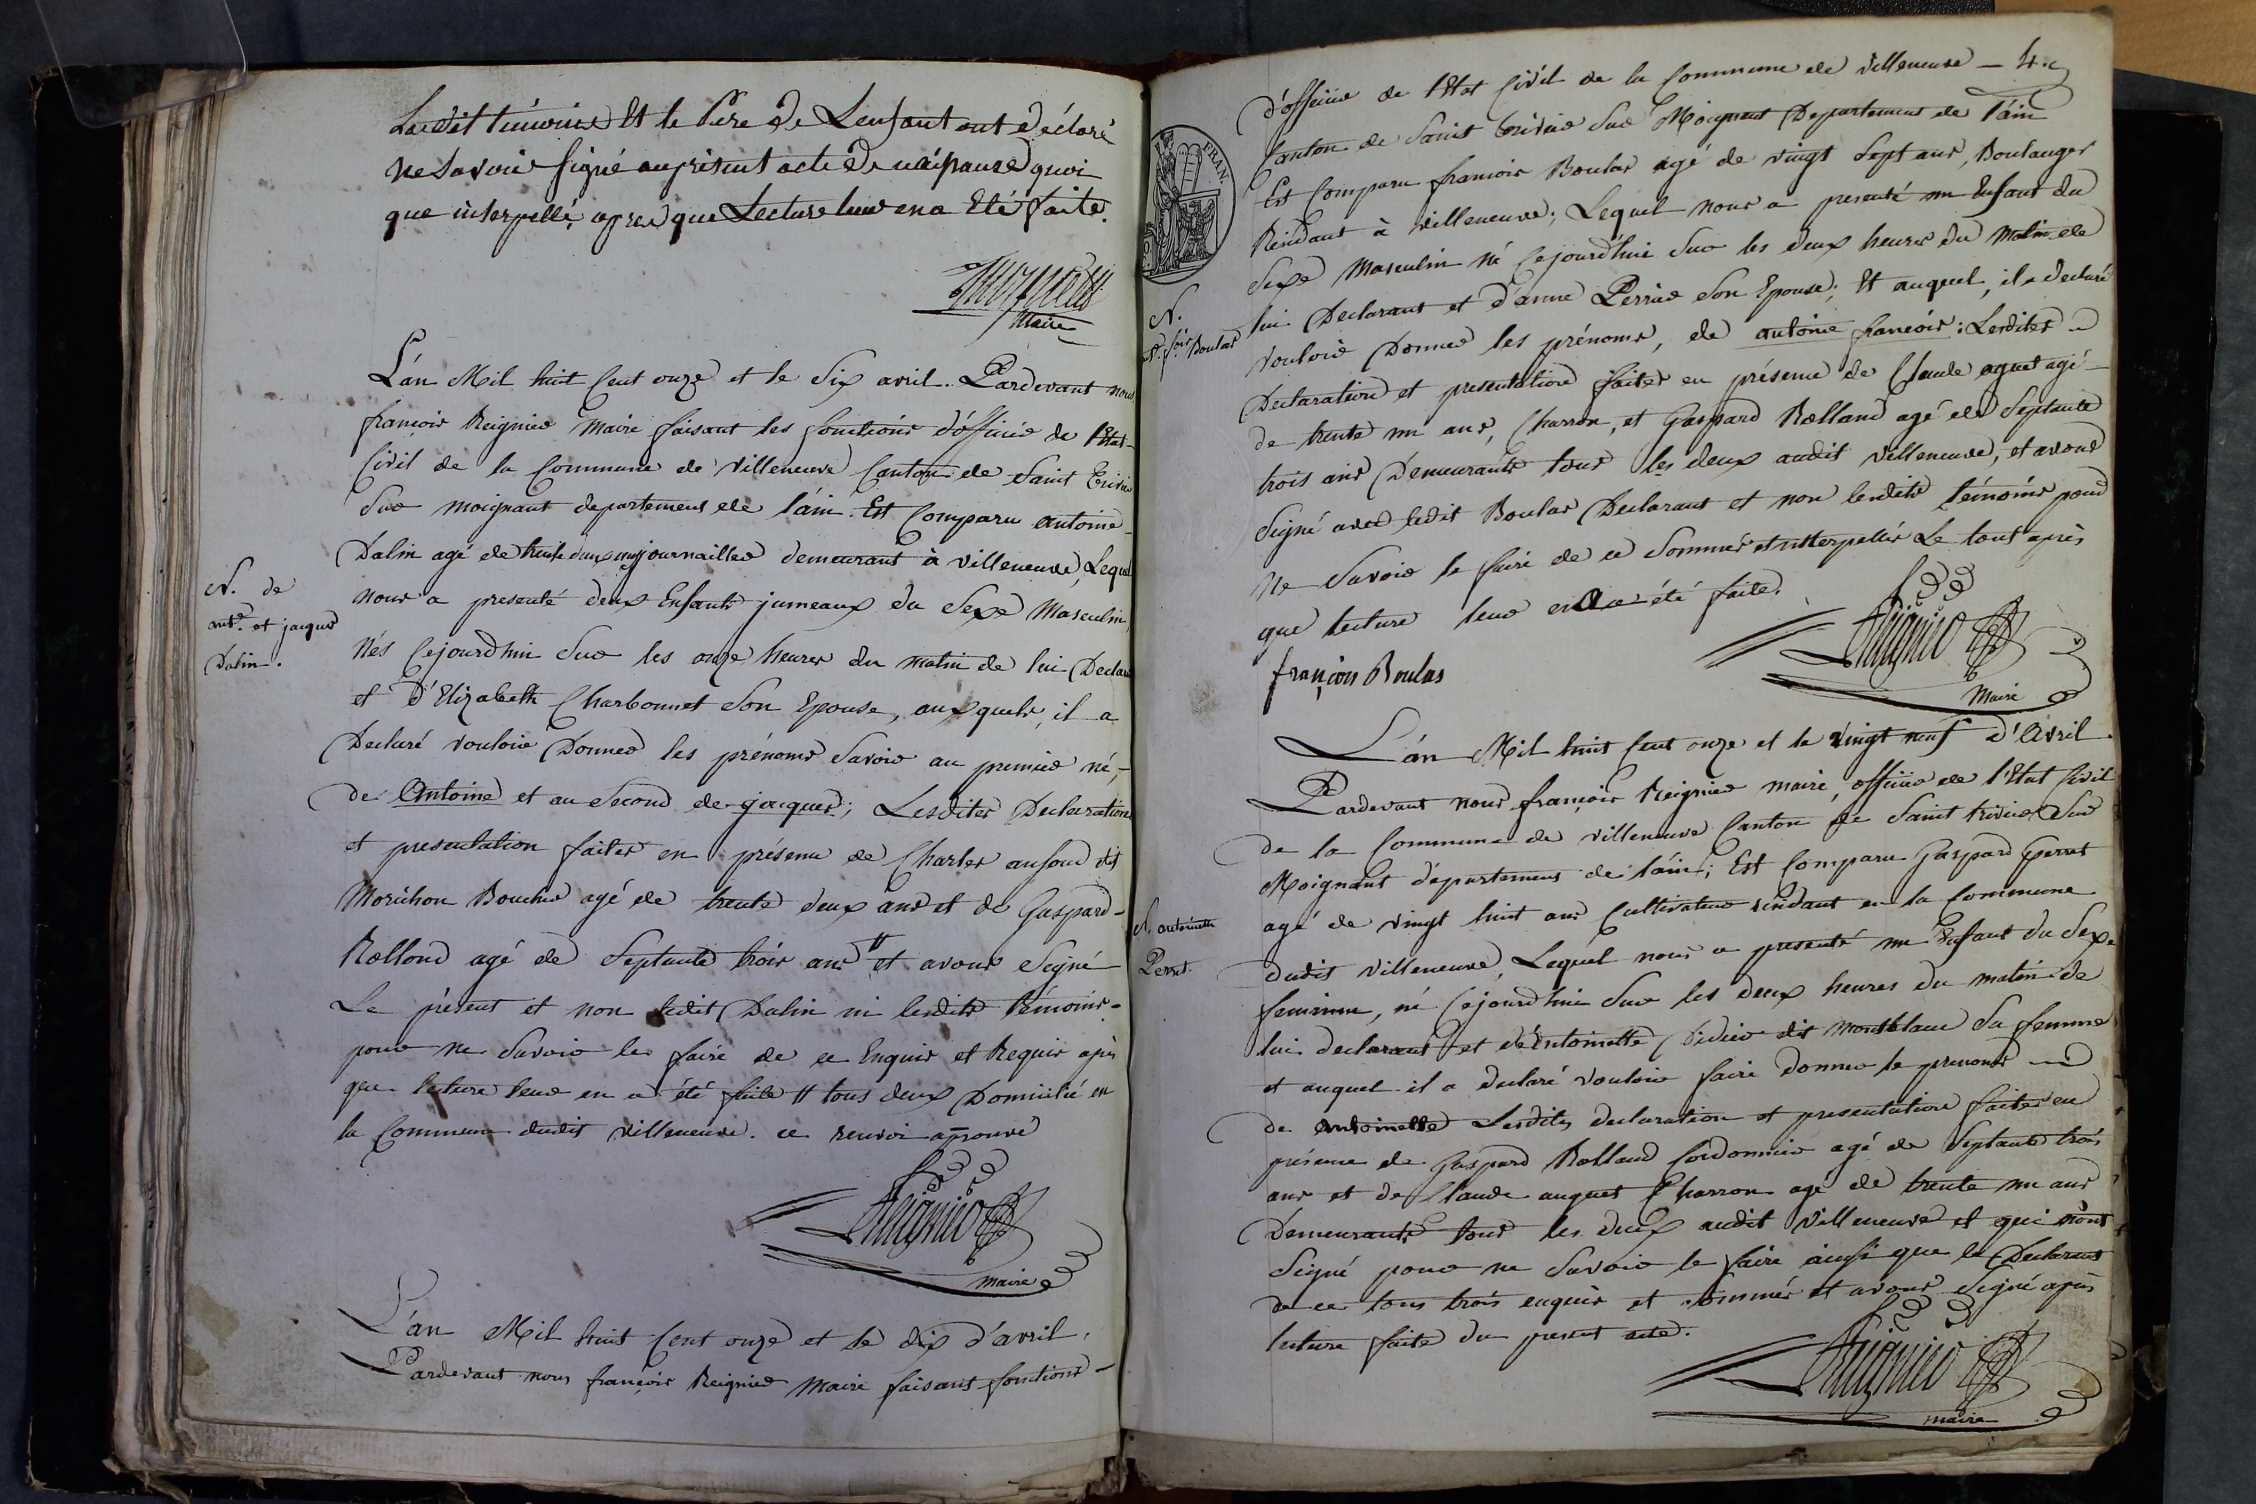 Ledit témoins Et le Pere De Lenfant ont Déclaré
ne Savoir signé au présent acte De naissance quoi
que interpellé, apres que Lecture leur en a Eté faite.
Maire
L'an Mil huit Cent onze et le Six avril. Pardevant nous
françois Reignier Maire faisant les fonctions d'officier de l'Etat-
Civil de la Commune de Villeneuve Canton de Saint Trivier
Sur moignant departement de l'ain. Est Comparu antoine
Dalin agé de trente deux journaillier demeurant à Villeneuve, Lequel
N. de
ant.e et jacques
Dalin.
nous a presenté deux Enfants jumeaux du Sexe Masculin,
Nés Cejourdhui Sur les onze heures du matin de lui Declarant
et D'Elizabeth Charbonnet Son Epouse, auxquels, il a
Declaré vouloir Donner les prénoms Savoir au premier né,-
de Antoine et au Second de jacques; Lesdites Declaration
et presentation faites en présence de Charles aufour dit
Morichon Boucher agé de trente deux ans et de Gaspard-
Rolland agé de Septante trois ans # et avons Signé
Le présent et non ledit Dalin ni lesdits témoins-
pour ne Savoir le faire de ce Enquis et Requis après
que lecture leur en a été faite # tous deux Domicilié en
la Commune dudit villeneuve. ce renvoi aprouvé
Reignier
maire
L'an Mil huit Cent onze et le dix d'avril,
Pardevant nous françois Reignier Maire faisant fonctions-
d'officier de l'Etat Civil de la Commune de Villeneuve - 4.
Canton de Saint trivier Sur Moignant Departement de l'ain
Est Comparu françois Boulas agé de vingt Sept ans, Boulanger
FRAN.
Résidant à Villeneuve; Lequel nous a presenté un Enfant du
Sexe Masculin né Cejourd'hui Sur les deux heures du Matin de
lui Declarant et d'anne Perrier Son Epouse; Et auquel, il a declaré
N.
f.ois Boulas
vouloir Donner les prénoms, de antoine françois; Lesdites
Declaration et presentation faites en présence de Claude aguet agé-
de trente un ans, Charron, et Gaspard Rolland agé de Septante
trois ans Demeurants tous les deux audit Villeneuve, et avons
Signé avec ledit Boulas Declarant et non lesdits témoins pour
ne Savoir le faire de ce Sommés et interpellés Le tout après
que lecture leur en a été faite.
françois Boulas
Reignier
Maire
L'an Mil huit Cent onze et le vingt neuf d'Avril.
Pardevant nous françois Reignier maire, officier de l'Etat Civil
de la Commune de Villeneuve Canton de Saint trivier Sur
Moignant département de l'ain; Est Comparu Gaspard perret
agé de vingt huit ans Cultivateur résidant en la Commune
N. antoinette
Perret.
dudit Villeneuve, Lequel nous a presenté un Enfant du Sexe
feminin, né Cejourdhui Sur les deux heures du matin de
lui declarant et d'Antoinette Didier dit Montblanc Sa femme
et auquel il a declaré vouloir faire donner le prenoms
de Antoinette Lesdites declaration et presentation faites en
présence de Gaspard Rolland Cordonnier agé de Septante trois
ans et de Claude auguet Charron agé de trente un ans
Demeurants tous les deux audit Villeneuve et qui n'ont
Signé pour ne Savoir le faire ainsi que le Declarant
de ce tous trois enquis et sommés et avons Signé après
lecture faite du present acte.
Reignier
maire